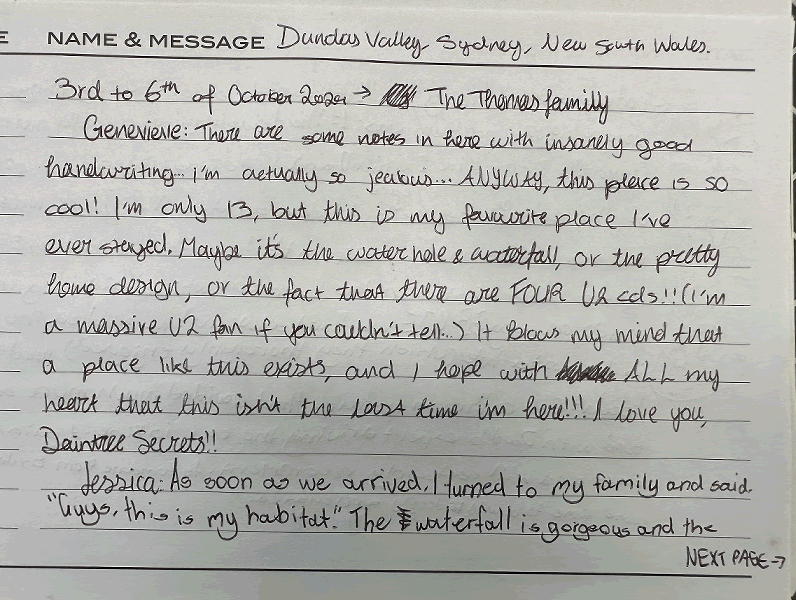 E NAME & MESSAGE Dundas Valley, Sydney, New South Wales.
3rd to 6th of October 2020 → The Thomas family
Genevieve: There are some notes in here with insanely good
handwriting... I'm actually so jealous... ANYWAY, this place is so
cool! I'm only 13, but this is my favourite place I've
ever stayed. Maybe it's the water hole & waterfall, or the pretty
home design, or the fact that there are FOUR U2 cds!! (I'm
a massive U2 fan if you couldn't tell...) It blows my mind that
a place like this exists, and I hope with ALL my
heart that this isn't the last time i'm here!!! I love you,
Daintree Secrets!!
Jessica: As soon as we arrived, I turned to my family and said.
"Guys, this is my habitat." The waterfall is gorgeous and the
NEXT PAGE →